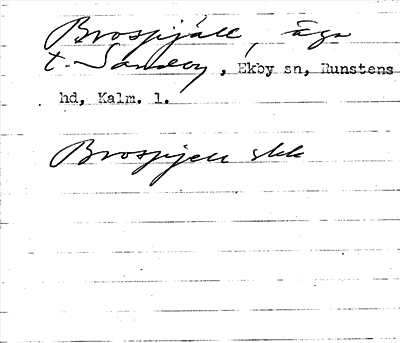 Brospjäll, äga
t. Sandby, Ekby sn, Runstens
hd, Kalm. l.
Brospjell skk